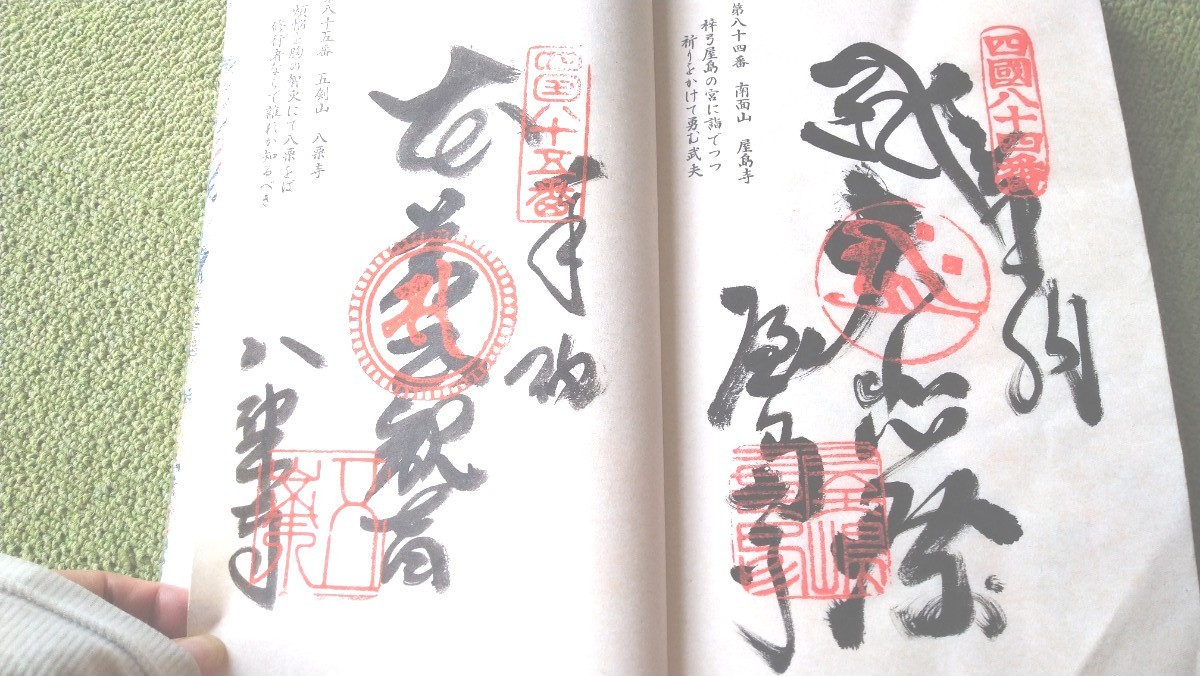 第八十四番 南面山 屋島寺
梓弓屋島の宮に詣でつつ
祈りをかけて勇む武夫
四國八十四番
奉納
屋島寺
八十五番 五剣山 八栗寺
煩悩を胸の智火にて八栗をば
修行者ならで誰れか知るべき
四国八十五番
奉納
本尊聖観音
八栗寺